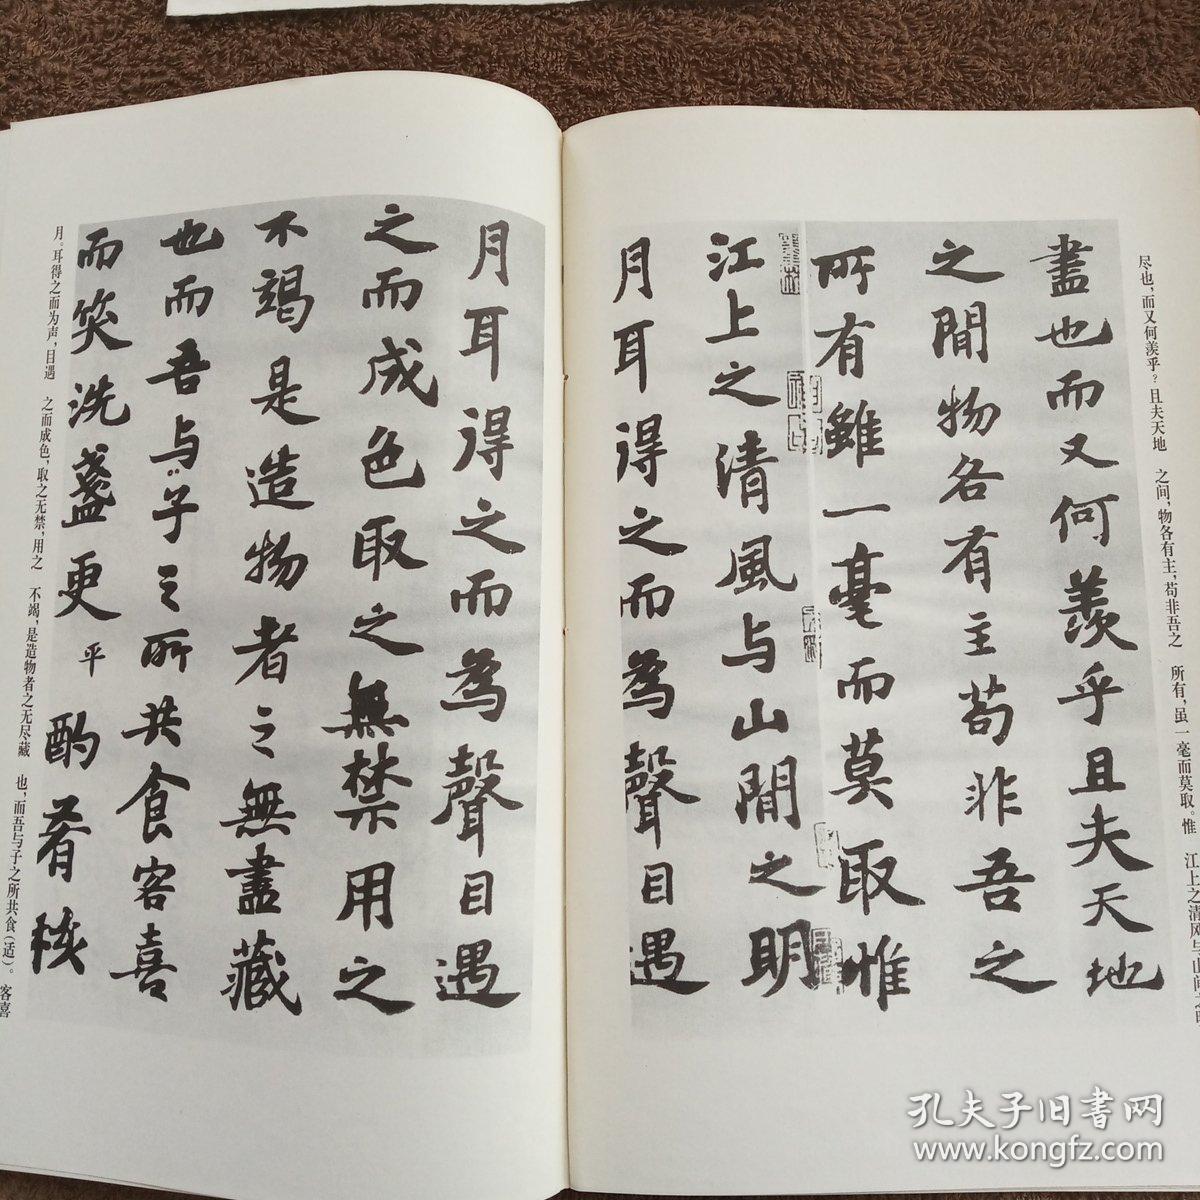 盡也而又何羨乎且夫天地
之間物各有主苟非吾之
所有雖一毫而莫取惟
江上之清風与山間之明
月耳得之而為聲目遇
尽也，而又何羡乎？且夫天地　之间，物各有主，苟非吾之　所有，虽一毫而莫取。惟　江上之清风与山间之明
月耳得之而為聲目遇
之而成色取之無禁用之
不竭是造物者之無盡藏
也而吾与子之所共食客喜
而笑洗盞更平酌肴核
月。耳得之而为声，目遇　之而成色，取之无禁，用之　不竭，是造物者之无尽藏　也，而吾与子之所共食（适）。客喜
孔夫子旧书网
www.kongfz.com